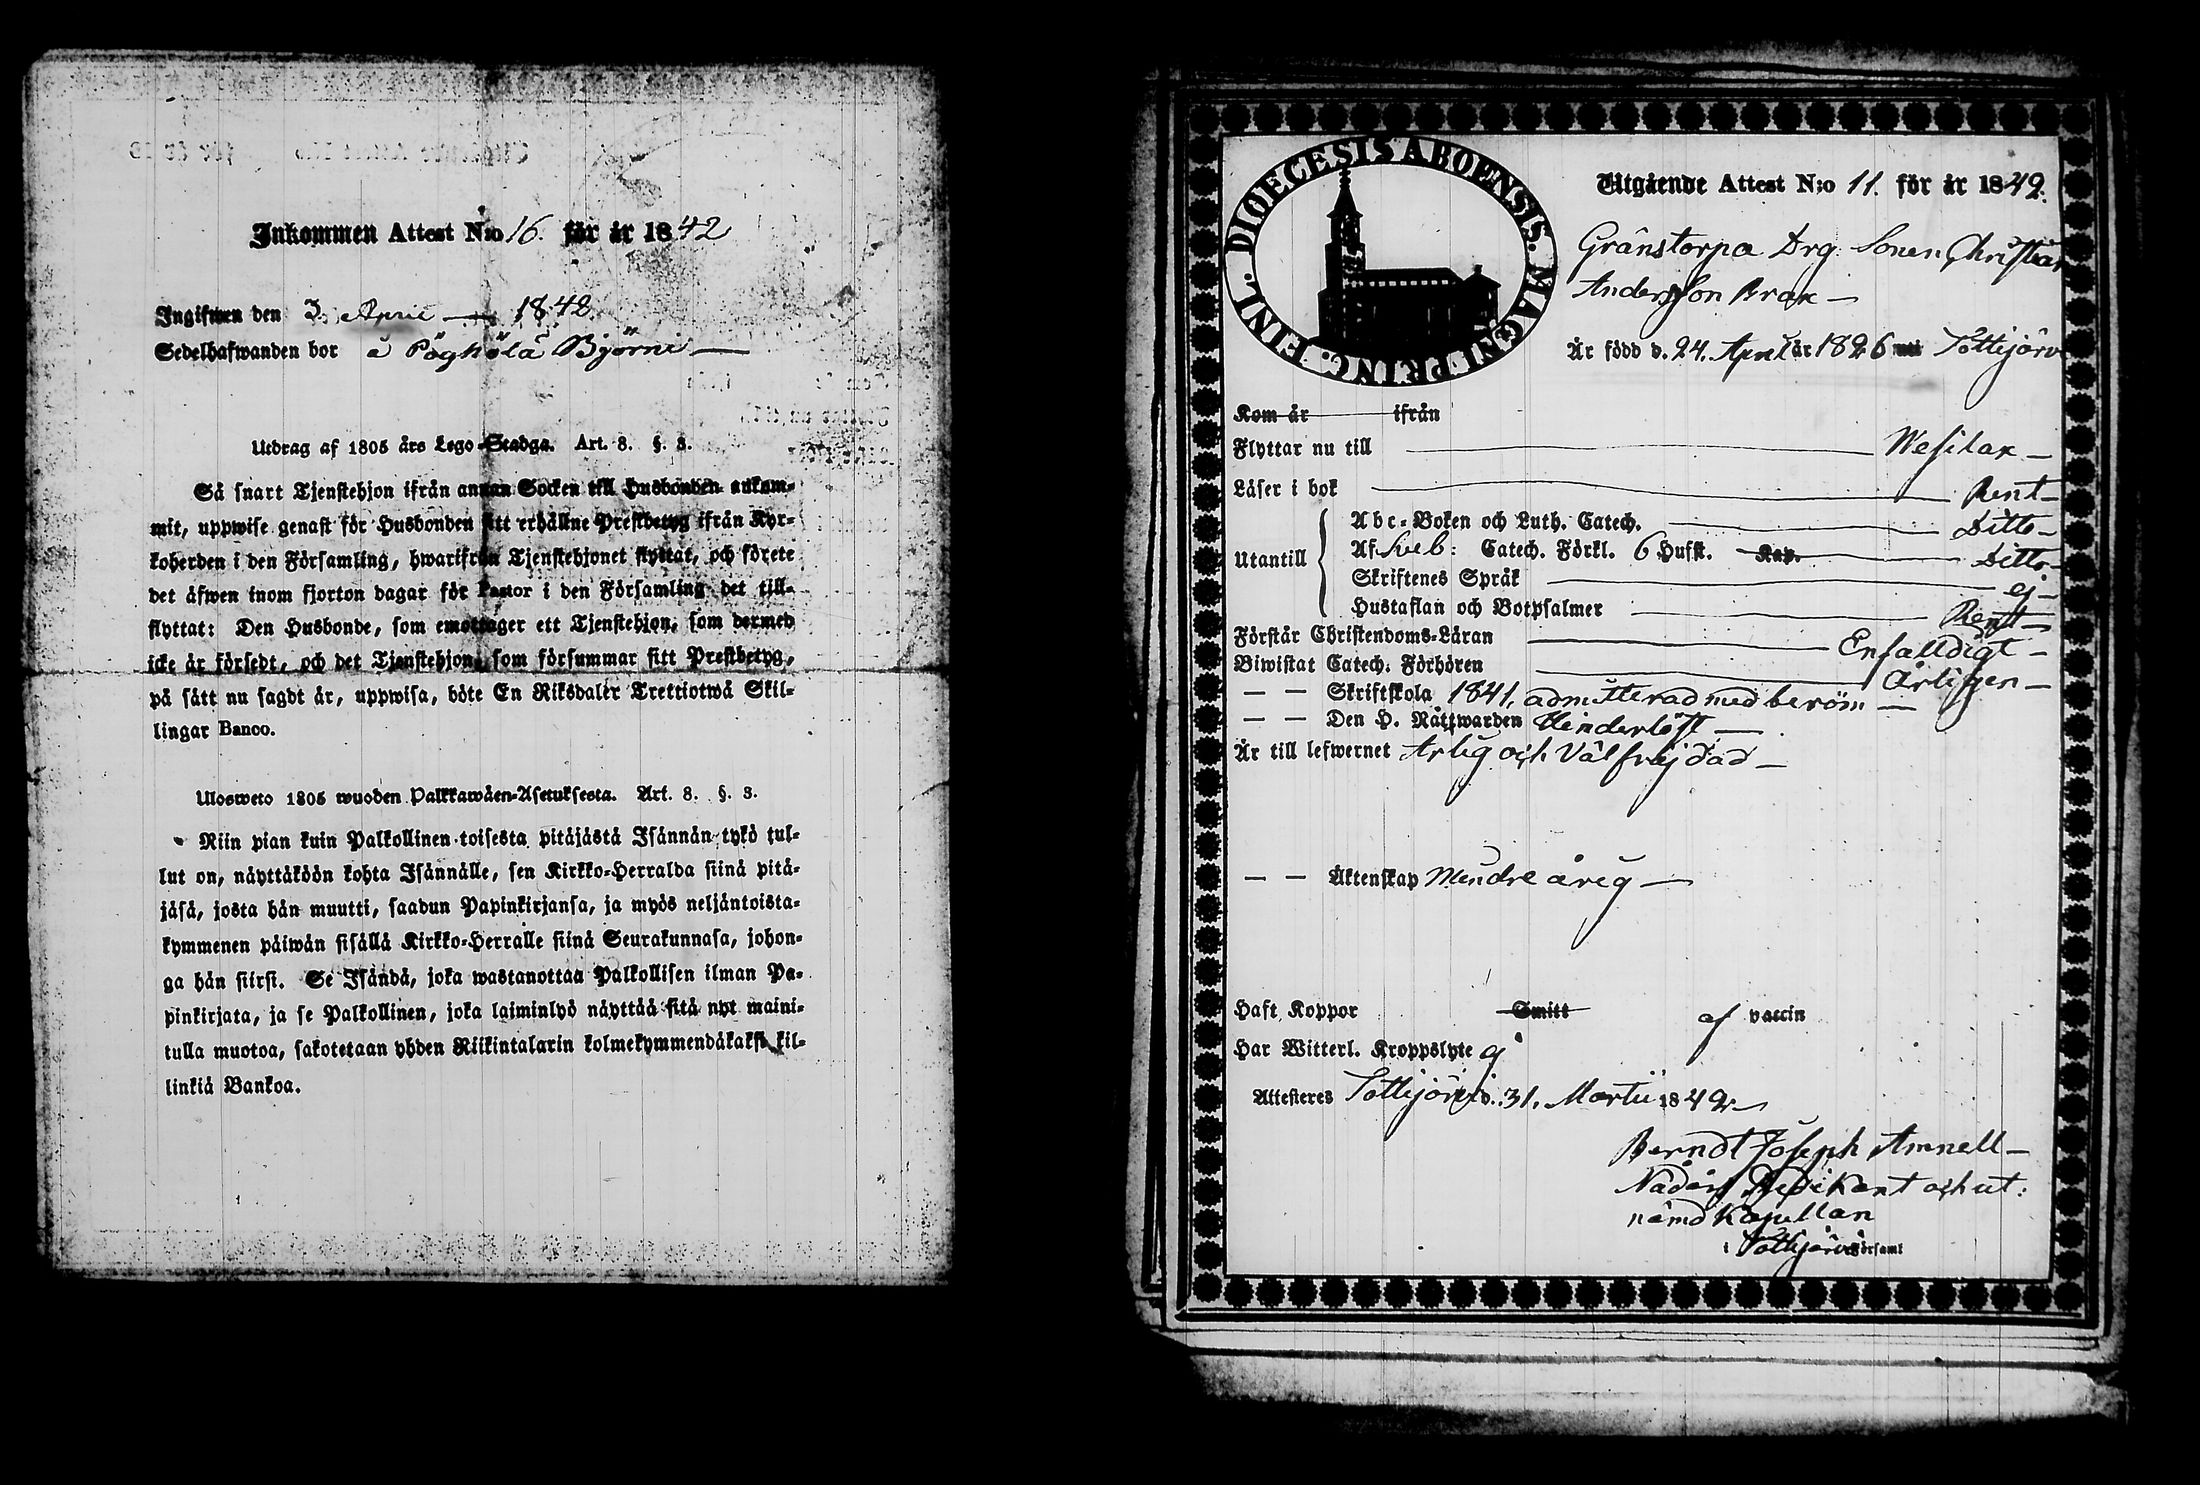 Inkommen Attest N:o 16. för år 1842
Ingifwen den 3. April — 1842.
Sedelhafwanden bor å Pöghölä Björni —
Utdrag af 1805 års Lego-Stadga. Art. 8. §. 3.
Så snart Tjenstehjon ifrån annan Socken till Husbonden ankom-
mit, uppwise genast för Husbonden sitt erhållne Prestbetyg ifrån Kyr-
koherden i den Församling, hwarifrån Tjenstehjonet flyttat, och förete
det äfwen inom fjorton dagar för Pastor i den Församling det till-
flyttat: Den Husbonde, som emottager ett Tjenstehjon, som dermed
icke är försedt, och det Tjenstehjon, som försummar sitt Prestbetyg,
på sätt nu sagdt är, uppwisa, böte En Riksdaler Trettiotwå Skil-
lingar Banco.
Ulosweto 1805 wuoden Palkkawäen-Asetuksesta. Art. 8. §. 3.
Niin pian kuin Palkollinen toisesta pitäjästä Isännän tykö tul-
lut on, näyttäköön kohta Isännälle, sen Kirkko-Herralda siinä pitä-
jäsä, josta hän muutti, saadun Papinkirjansa, ja myös neljäntoista-
kymmenen päiwän sisällä Kirkko-Herralle siinä Seurakunnasa, johon-
ga hän siirsi. Se Isändä, joka wastanottaa Palkollisen ilman Pa-
pinkirjata, ja se Palkollinen, joka laiminlyö näyttää sitä nyt maini-
tulla muotoa, sakotetaan yhden Riikintalarin kolmekymmendäkaksi kil-
linkiä Bankoa.
DIOECESIS ABOENSIS. MAGNI PRINC. FINL.
Utgående Attest N:o 11. för år 1842.
Gränstorpa Drg. Sonen Christian
Andersson Brax —
Är född d. 24. April år 1826 uti Tottijärvi
Kom år ifrån
Flyttar nu till — Wesilax —
Läser i bok — Rent —
Utantill
Abc-Boken och Luth. Catech. — Ditto —
Af Sveb: Catech. Förkl. 6 Hufst. Kap. — Ditto —
Skriftenes Språk — ej —
Hustaflan och Botpsalmer — Rent —
Förstår Christendoms-Läran — Enfalldigt —
Biwistat Catech. Förhören — Årligen —
— — Skriftskola 1841, admitterad med beröm —
— — Den H. Nattwarden Hinderlöst —
Är till lefwernet Ärlig och Välfräjdad —
— — Äktenskap Mindre årig —
Haft Koppor Smitt af vaccin
Har Witterl. Kroppslyte ej
Attesteres Tottijärvi d. 31. Martii 1842 —
Berndt Joseph Amnell —
Nådårs Predikant och ut:
nämd Kapellan
i Tottijärvi Församl